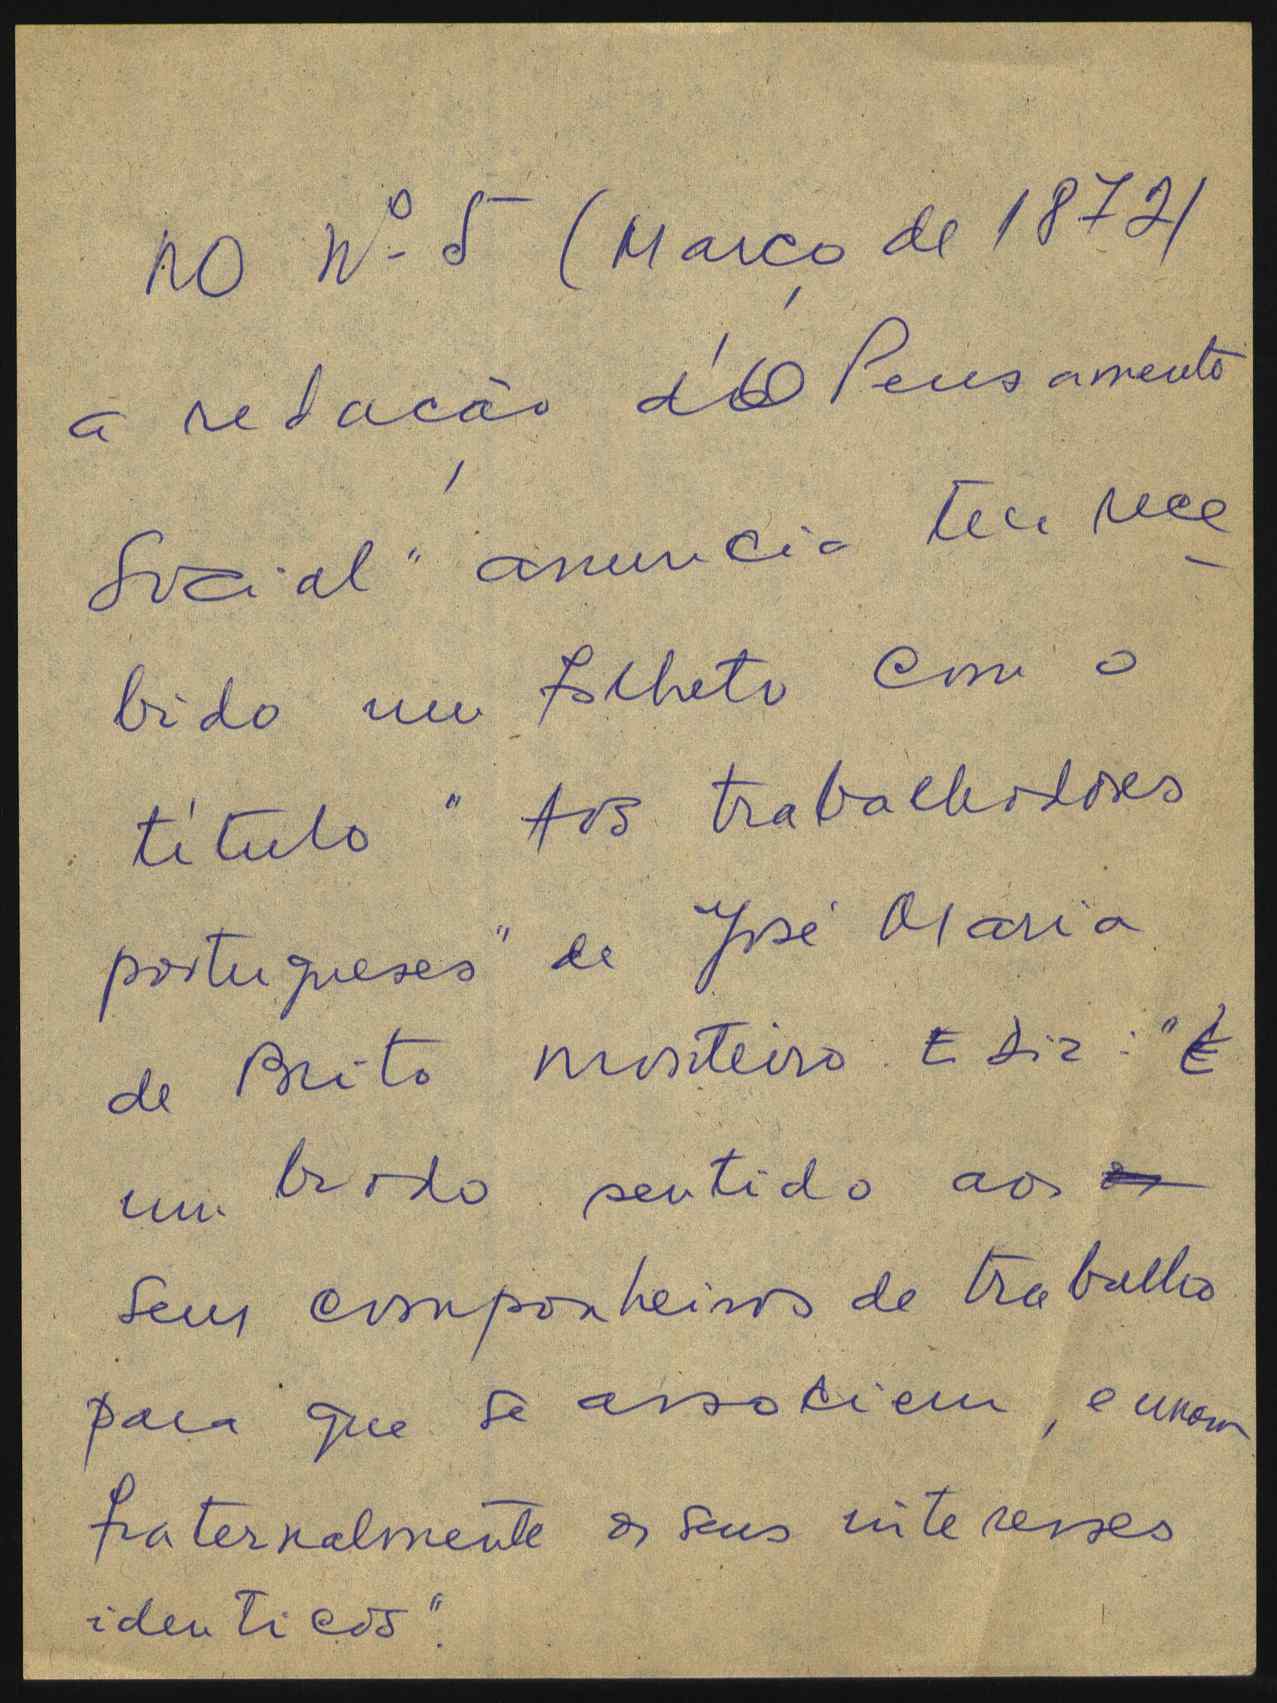 NO Nº 5 (Março de 1872)
a redação d'O Pensamento
Social" anuncia ter rece
bido um folheto com o
título "Aos trabalhadores
portugueses" de José Maria
de Brito Monteiro. E diz: "É
um brado sentido aos os
seus companheiros de trabalho
para que se associem, e unam
fraternalmente os seus interesses
identicos".